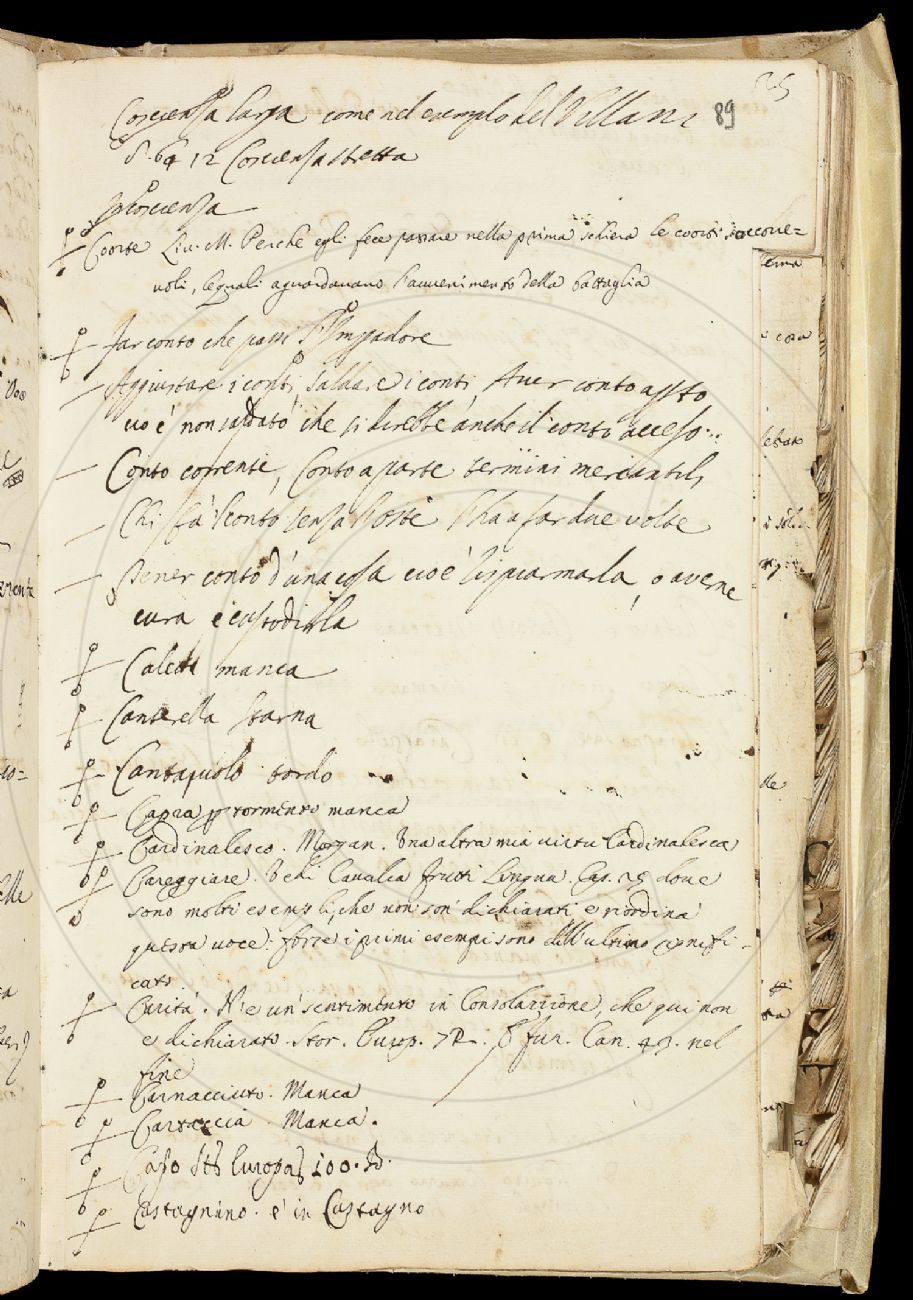 25
89
Coscienza larga come nel esemplo del Villani
S. 64 12 Coscienza stretta
In coscienza
Coorte Liv. M. Perchè egli fece passare nella prima schiera le coorti soccorre=
voli, le quali aguardavano l'avvenimento della battaglia
Far conto che passi l'Imperadore
Aggiustare i conti, saldare i conti, Aver conto aperto
cio è non saldato che si direbbe anche il conto acceso
Conto corrente, Conto a parte termini mercantili
Chi fa 'l conto senza l'oste l'ha a far due volte
Tener conto d'una cosa cio è risparmiarla, o averne
cura e custodirla
Calete manca
Canterella starna
Cantaiuolo tordo
Capra per tormento manca
Cardinalesco. Morgan. Una altra mia virtu Cardinalesca
Careggiare. Vedi Cavalca frutti Lingua. Cap. 25 dove
sono molti esempli, che non son dichiarati e riordina
questa voce. forse i primi esempi sono dell'ultimo signifi-
cato
Carità. N'è un sentimento in Consolazione, che qui non
e dichiarato. Stor. Europ. 72. fur. Can. 43. nel
fine
Carnacciuto. Manca
Cartaccia. Manca.
Caso Europa 100.
Castagnino. è in Castagno